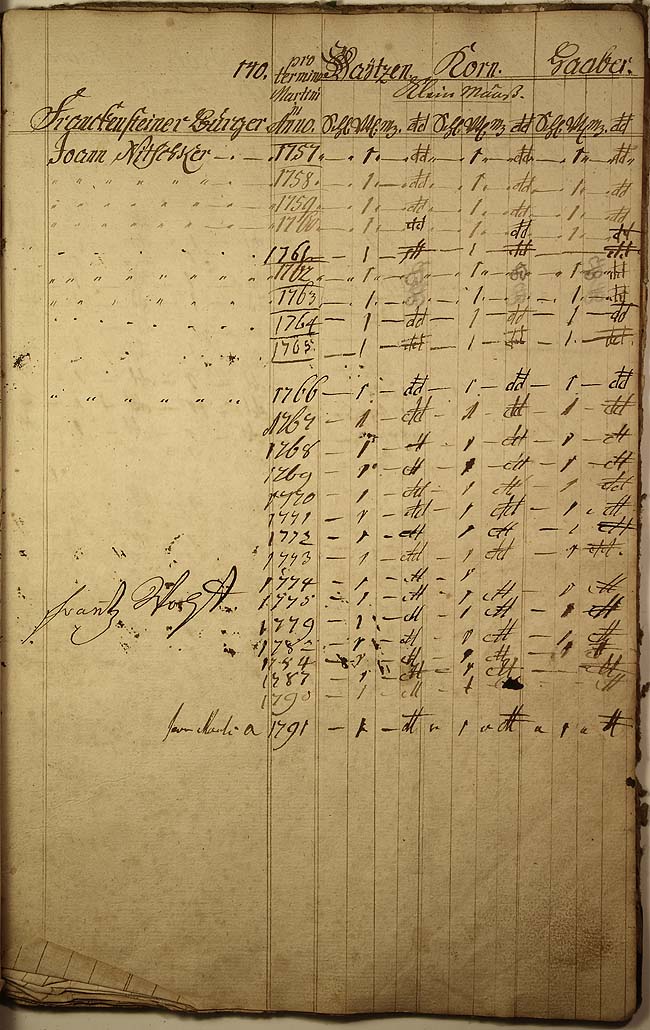 170. pro termino Martini Waÿtzen Korn. Haaber.
Klein Mааß.
Franckensteiner Bürger Anno. Schl. Vl. mz. dd Schl. Vl. mz. dd Schl. Vl. mz. dd
Joann Nitschker - . - . 1757. - . 1. - . dd - . 1. - . dd - . 1. - . dd.
" " " " " " " 1758. - . 1. - . dd - . 1. - . dd - . 1. - . dd
" " " " " " " 1759. - . 1. - . dd - . 1. - . dd - . 1. - . dd
" " " " " " " 1760. - . 1. - . dd - . 1. - . dd - . 1. - . dd
1761 - 1 - dd - 1 - dd - 1 - dd
" " " " " " " 1762. - 1 - dd - 1 - dd - 1 - dd
1763 - 1. - dd - 1. - dd - 1. - dd
1764 - 1 - dd - 1 - dd - 1 - dd
1765. - 1 - dd - 1 - dd - 1 - dd
" " " " " " " 1766 - 1. - dd - 1. - dd - 1 - dd
1767 - 1 - dd - 1 - dd - 1 - dd
1768 - 1 - dd - 1 - dd - 1 - dd
1769 - 1 - dd - 1 - dd - 1 - dd
1770 - 1 - dd - 1 - dd - 1 - dd
1771 - 1 - dd - 1 - dd - 1 - dd
1772 - 1 - dd - 1 - dd - 1 - dd
1773 - 1 - dd - 1 - dd - 1 - dd.
1774 - 1 - dd - 1
Frantz 1775 - 1 - dd - 1 dd - 1 dd
1779 - 1 - dd 1 dd - 1 dd
1782 - 1 - dd 1 dd - 1 dd
1784 - 1 dd 1 dd - 1 dd
1787 - 1 - dd 1 dd dd
1790 - 1 - dd 1 dd
a 1791 - 1 - dd 1 dd 1 dd